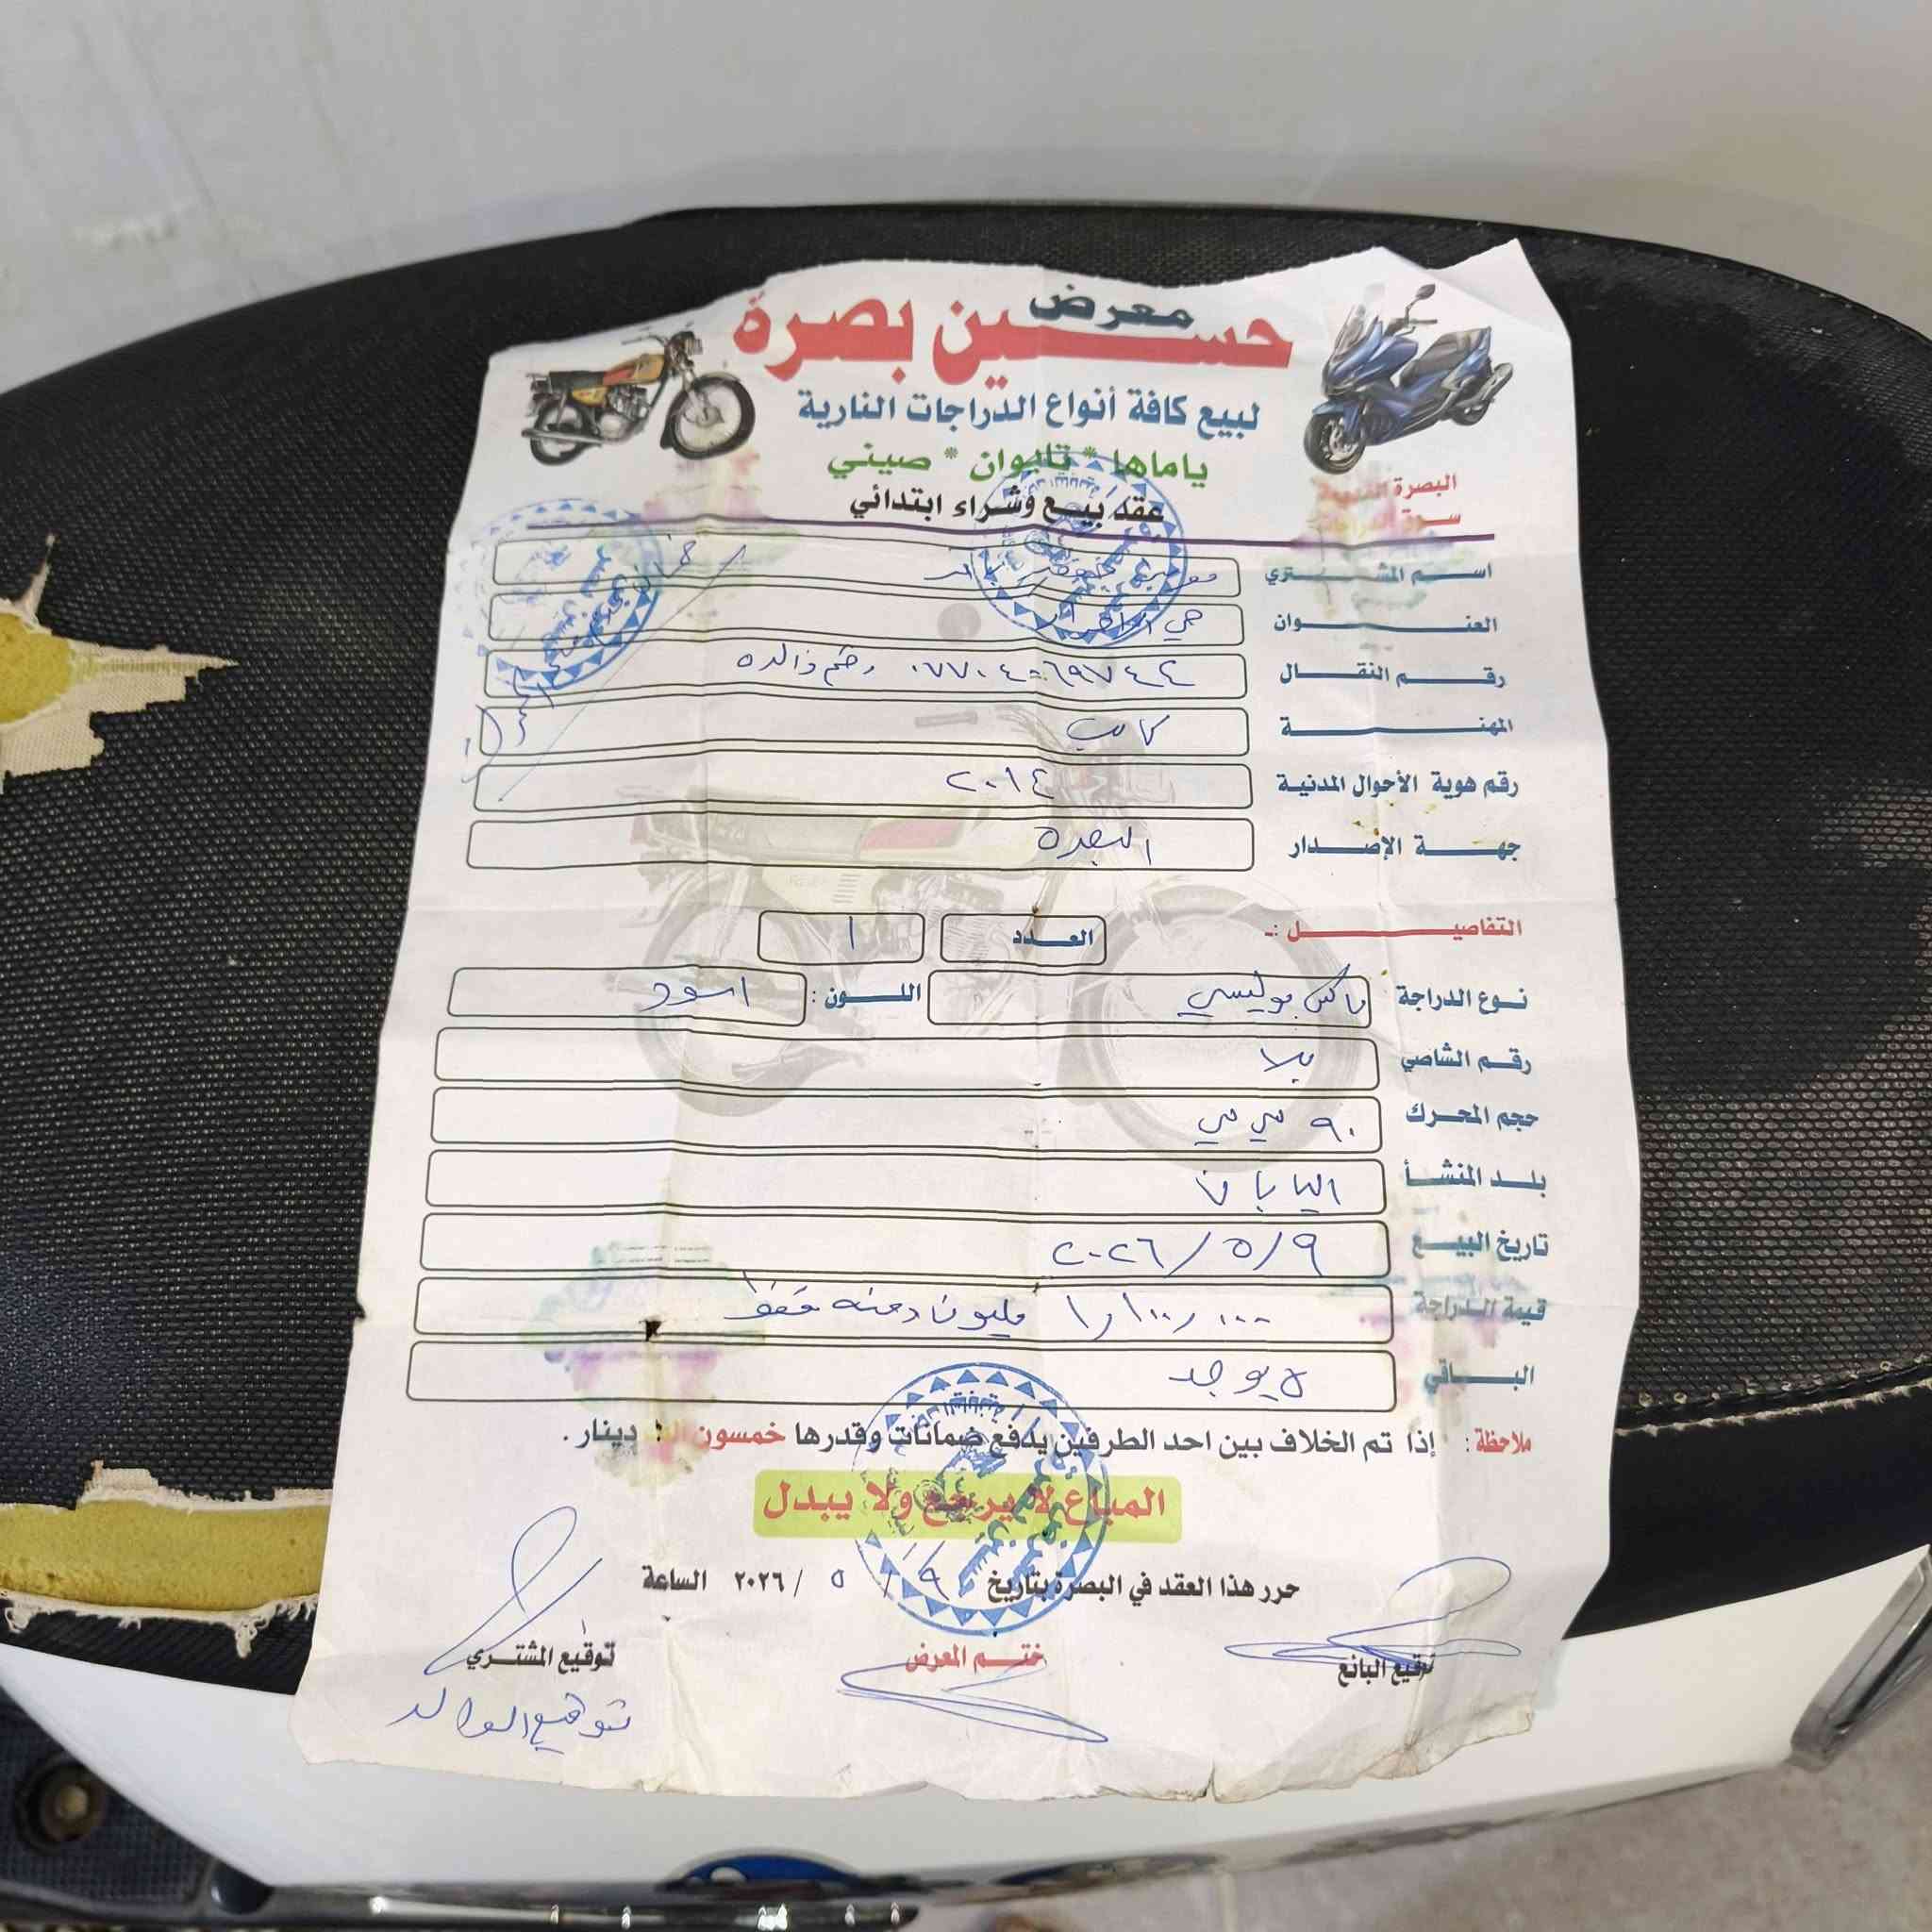 معرض
حسين بصرة
لبيع كافة أنواع الدراجات النارية
ياماها * تايوان * صيني
البصرة
سوق الدراجات
عقد بيع وشراء ابتدائي
اسم المشتري
العنوان حي
رقم النقال رقم والده
المهنة كاسب
رقم هوية الأحوال المدنية ٢٠١٤
جهة الإصدار البصرة
التفاصيل :-
العدد ١
نوع الدراجة بوليسي اللون : اسود
رقم الشاصي بلا
حجم المحرك ٩٠ سي سي
بلد المنشأ اليابان
تاريخ البيع ٩/٥/٢٠٢٦
قيمة الدراجة ١,١٠٠,٠٠٠ مليون ومئه فقط
الباقي لا يوجد
ملاحظة : إذا تم الخلاف بين احد الطرفين يدفع ضمانات وقدرها خمسون دينار .
المباع لا يرجع ولا يبدل
حرر هذا العقد في البصرة بتاريخ ٩ / ٥ / ٢٠٢٦ الساعة
توقيع البائع ختم المعرض توقيع المشتري
توقيع الوالد